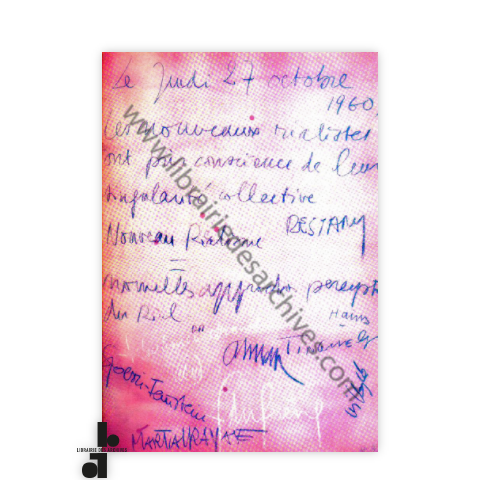 Le Jeudi 27 octobre
1960.
Les nouveaux réalistes
ont pris conscience de leur
singularité collective
RESTANY
Nouveau Réalisme
=
nouvelles approches percept
du Réel
Hains
Arman Tinguely
MARTIAL RAYSSE
www.librairiedesarchives.com
LIBRAIRIE DES ARCHIVES